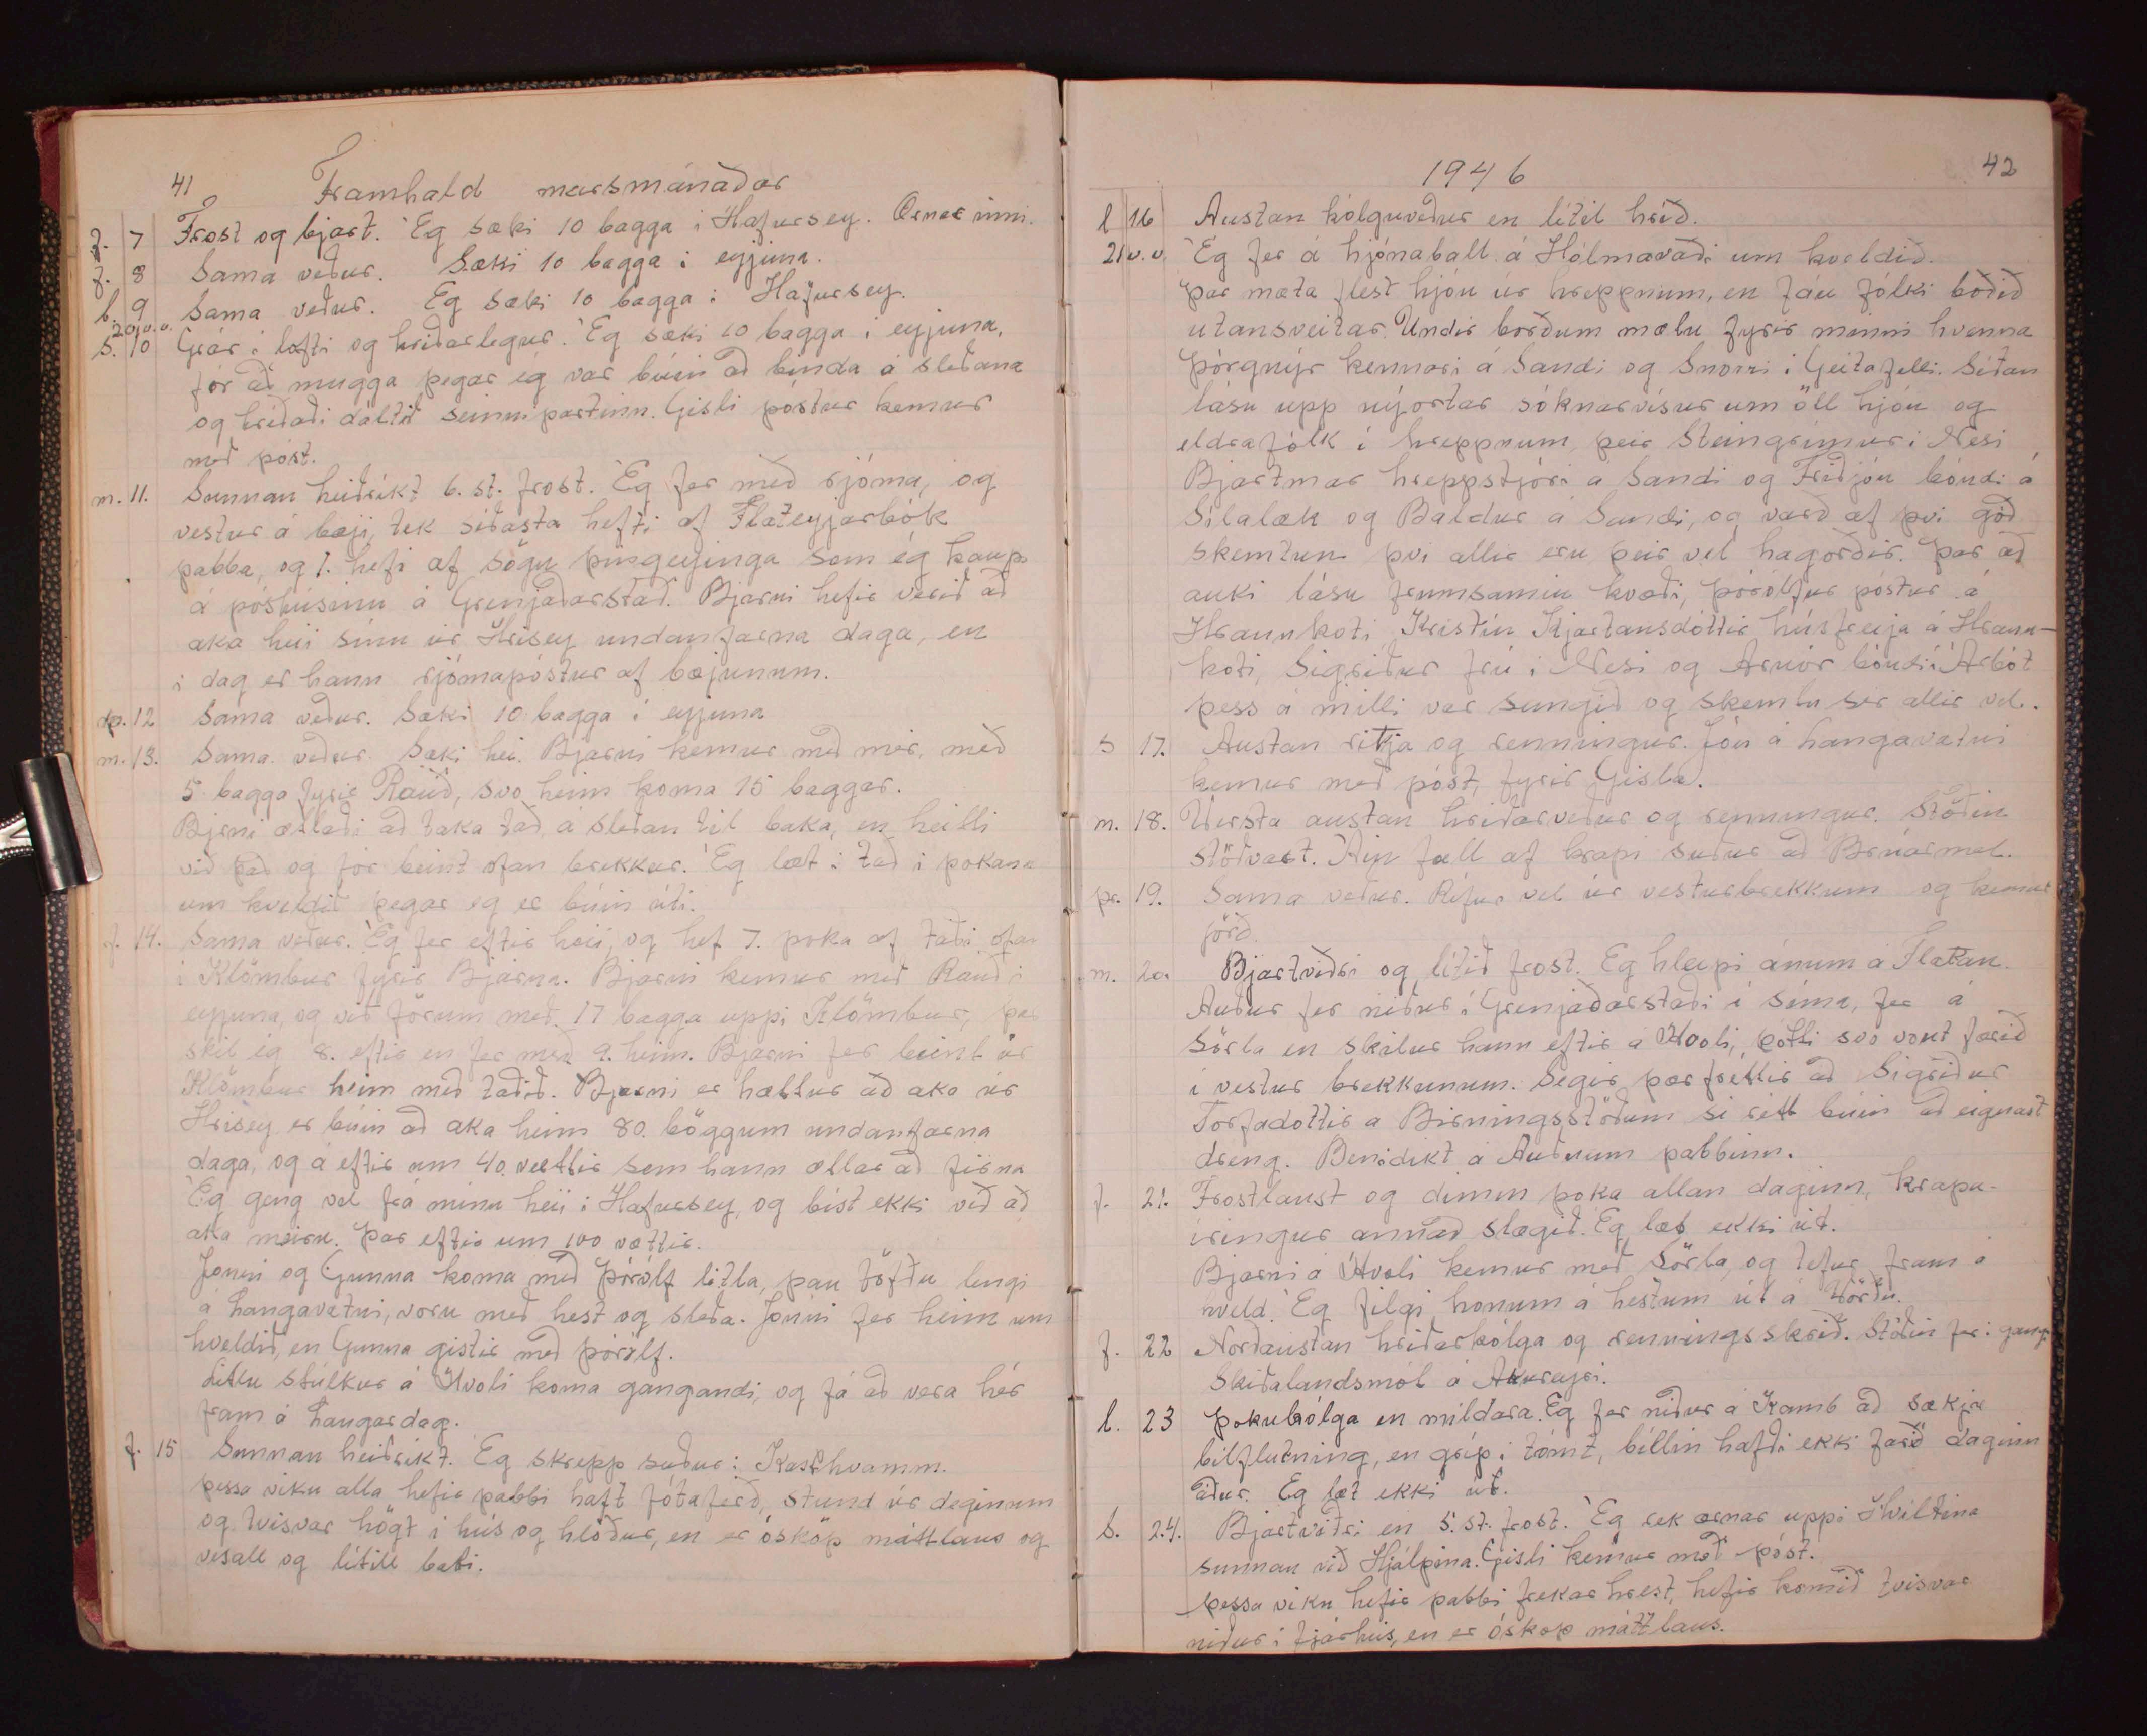 41
Framhald marsmánaðar
f. 7 Frost og bjart. Ég sæki 10 bagga í Hafursey. Ærnar inni.
f. 8 Sama veður. Sæki 10 bagga í eyjuna.
l. 9 Sama veður. Ég sæki 10 bagga í Hafursey.
20.v.v.
S. 10 Grár í lofti og hríðarlegur. Ég sæki 10 bagga í eyjuna,
fór að mugga þegar ég var búin að binda á sleðana
og hríðaði dáltið seinnipartinn. Gísli póstur kemur
með póst.
m. 11. Sunnan heiðríkt 6. st. frost. Ég fer með rjóma, og
vestur á bæji, tek síðasta hefti af Flateyjarbók
pabba, og 1. hefi af Sögu þingeyinga sem ég kaupi
á pósthúsinu á Grenjaðarstað. Bjarni hefir verið að
aka heii sínu úr Hrísey undanfarna daga, en
í dag er hann rjómapóstur af bæjunum.
þr. 12 Sama veður. Sæki 10 bagga í eyjuna
m. 13. Sama veður. Sæki hei. Bjarni kemur með mér, með
5. bagga fyrir Rauð, svo heim koma 15 baggar.
Bjrni ætlaði að taka tað á sleðan til baka, en hætti
við það og fór beint ofan brekkur. Ég læt í tað í pokana
um kveldið þegar ég er búin úti.
f. 14. Sama veður. Ég fer eftir heii, og hef 7. poka af taði ofan
í Klömbur fyrir Bjarna. Bjarni kemur með Rauð í
eyjuna, og við förum með 17 bagga uppi Klömbur, þar
skil ég 8. eftir en fer með 9. heim. Bjarni fer beint úr
Klömbur heim með taðið. Bjarni er hættur að aka úr
Hrísey er búin að aka heim 80. böggum undanfarna
daga, og á eftir um 40. vættir sem hann ætlar að firna
Ég geng vel frá mínu heii í Hafursey, og bíst ekki við að
aka meiru. Þar eftir um 100 vættir.
Jónni og Gunna koma með Þórólf litla, þau töfðu lengi
á Langavatni, voru með hest og sleða. Jónni fer heim um
kveldið, en Gunna gistir með Þórólf.
Litlu stúlkur á Hvoli koma gangandi, og fá að vera hér
fram á Laugardag.
f. 15 Sunnan heiðríkt. Ég skrepp suður í Kasthvamm.
þessa viku alla hefir pabbi haft fótaferð, stund úr deginum
og tvisvar högt í hús og hlöður, en er ósköp máttlaus og
vesall og lítill bati.
1946
42
l 16 Austan kólguveður en lítil hríð.
21 v.v. Ég fer á hjónaball á Hólmavaði um kveldið.
Þar mæta flest hjón úr hreppnum, en fáu fólki boðið
utansveitar. Undir borðum mælu fyrir minni hvenna
Þórgnýr kennari á Sandi og Snorri í Geitafelli. Síðan
lásu upp nýortar sóknarvísur um öll hjón og
eldrafólk í hreppnum, þeir Steingrímur í Nesi
Bjartmar hreppstjóri á Sandi og Friðjón bóndi á
Sílalæk og Baldur á Sandi, og varð af því góð
skemtun því allir eru þeir vel hagorðir. Þar að
auki lásu frumsamin kvæði, Þórólfur póstur á
Hraunkoti, Kristín Kjartansdóttir húsfreyja á Hraun-
koti, Sigríður frú í Nesi og Arnór bóndi í Árbót
þess á milli var sungið og skemtu sér allir vel.
S 17. Austan ritja og renningur. Jón á Langavatni
kemur með póst, fyrir Gísla.
m. 18. Versta austan hríðarveður og renningur. Stöðin
stöðvast. Áin full af krapi suður að Brúarmel.
þr. 19. Sama veður. Rífur vel úr vesturbrekkum og kemur
jörð.
m. 20. Bjartviðri og lítið frost. Ég hleypi ánum á Flatan.
Auður fer niður í Grenjaðarstaði í síma, fer á
Sörla en skilur hann eftir á Hvoli, þótti svo vont færið
í vestur brekkunum. Segir þær frettir að Sigríður
Torfadottir a Birningsstöðum sé rétt búin að eignast
dreng. Benidikt á Auðnum pabbinn.
f. 21. Frostlaust og dimm þoka allan daginn, krapa-
íringur annað slagið. Ég læt ekki út.
Bjarni á Hvoli kemur með Sörla, og tefur fram á
kveld. Ég filgi honum á hestum út á Vörðu.
f. 22 Norðaustan hríðarkólga og renningsskrið. Stöðin fer í gang.
Skíðalandsmót á Akureyri.
l. 23 Þokukólga en mildara. Ég fer niður á Kamb að sækja
bílflutning, en gríp í tómt, bíllin hafði ekki farið daginn
áður. Ég læt ekki út.
S. 24. Bjartviðri en 5. st. frost. Ég rek ærnar uppi Hvíltina
sunnan við Hjálpina. Gísli kemur með póst.
þessa viku hefir pabbi frekar hrest, hefir komið tvisvar
niður í fjárhús, en er ósköp máttlaus.